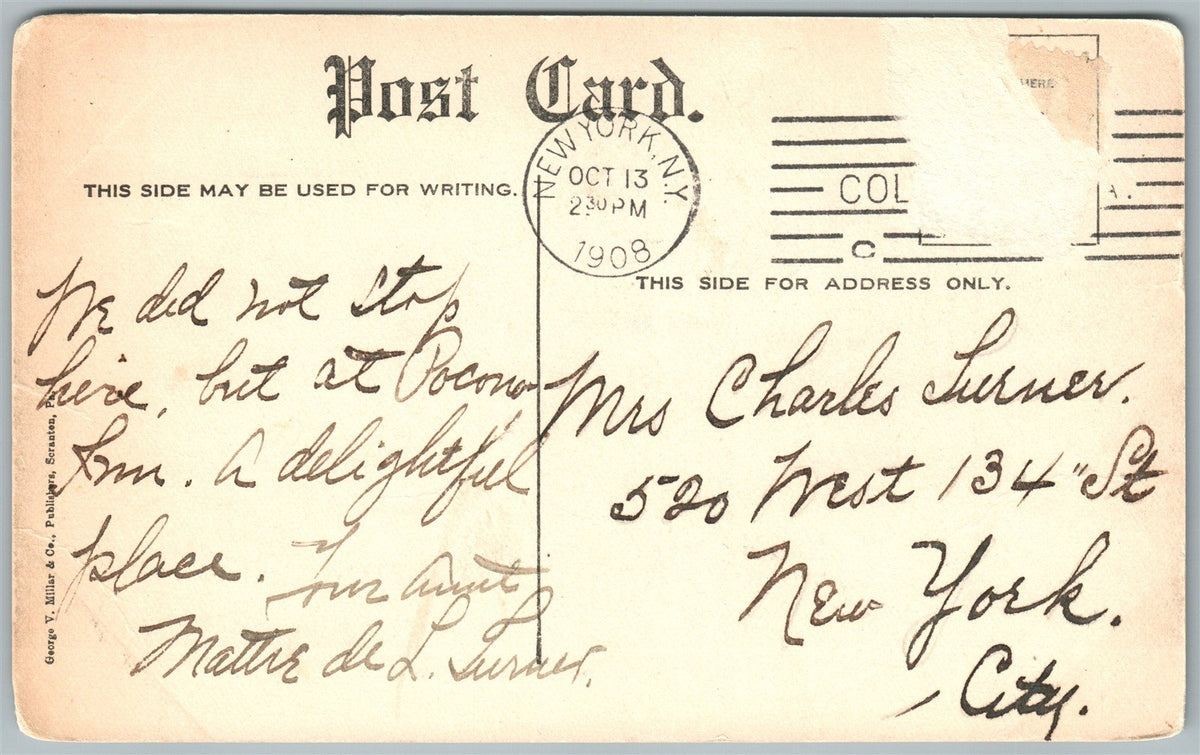 Post Card.
THIS SIDE MAY BE USED FOR WRITING.
NEW YORK, N.Y.
OCT 13
2 30 PM
1908
HERE
COL
A.
C
THIS SIDE FOR ADDRESS ONLY.
We did not stop
here, but at Pocono
Inn. A delightful
place. Your aunt
Mattie de L. Turner.
Mrs Charles Turner.
520 West 134" St
New York.
City.
George V. Millar & Co., Publishers, Scranton, Pa.